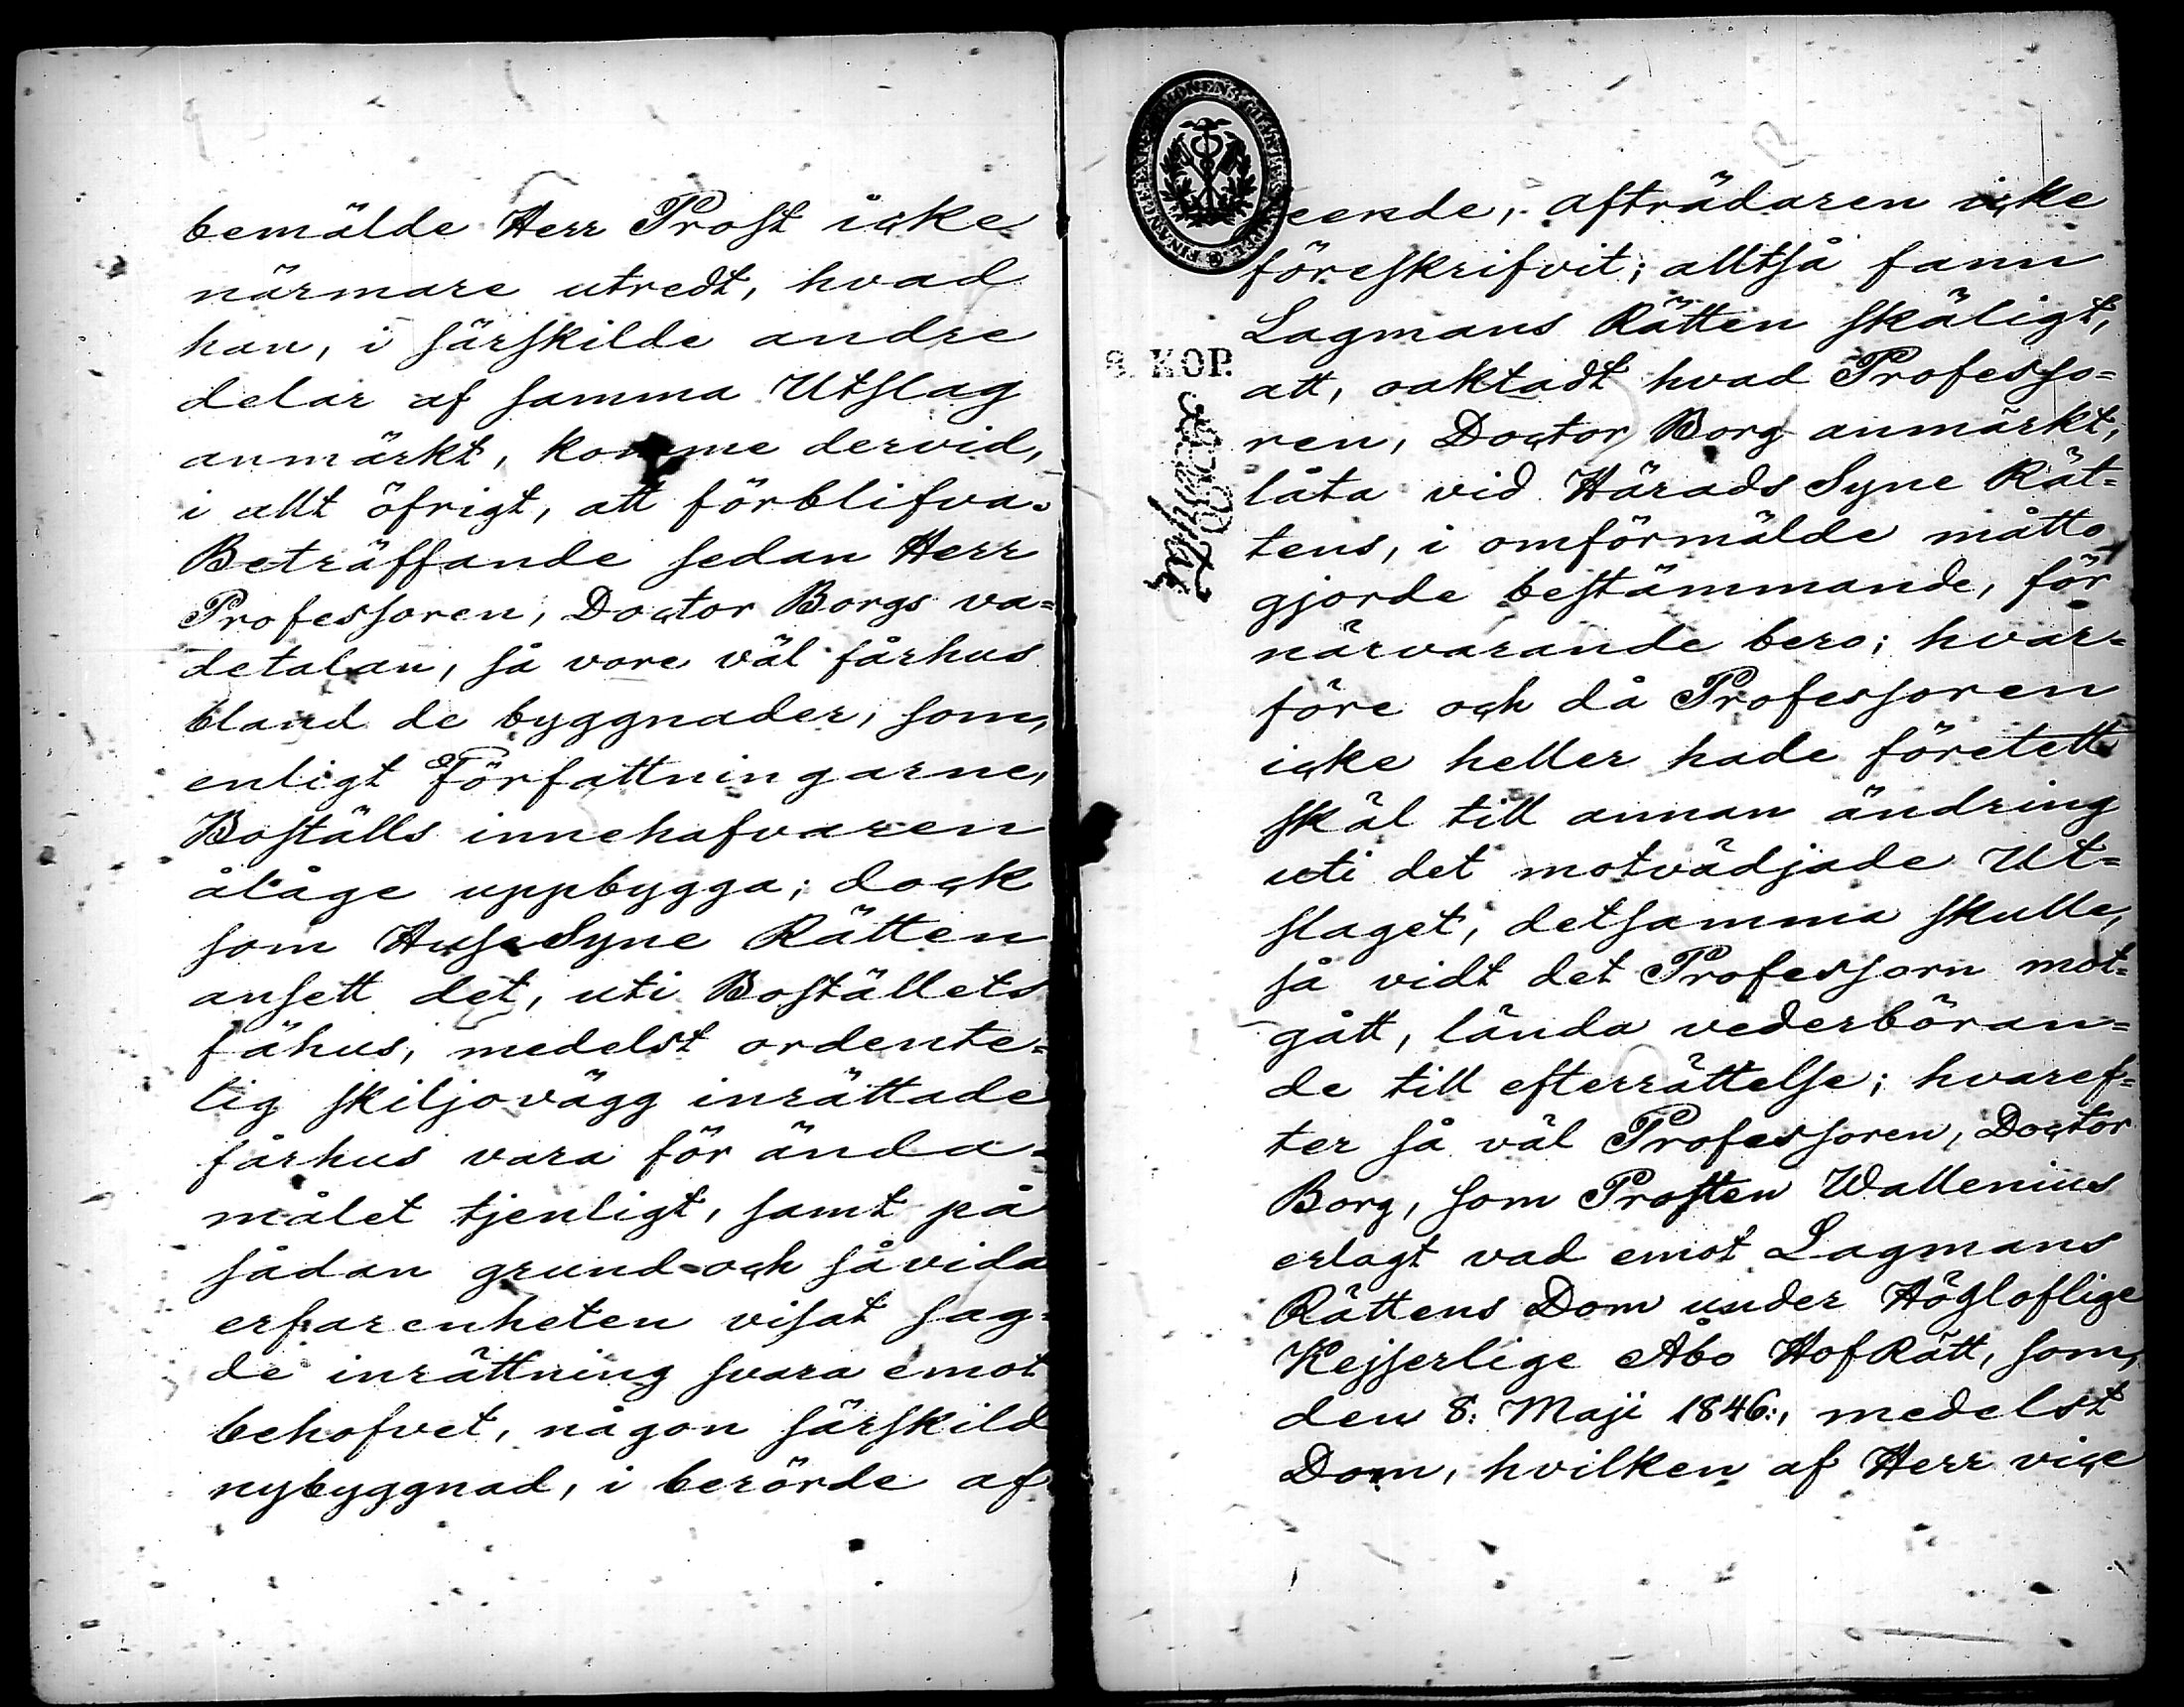 bemälde Herr Prost icke
närmare utredt, hvad
han, i särskilde andre
delar af samma Utslag
anmärkt, komme dervid,
i allt öfrigt, att förblifva.
Beträffande sedan Herr
Professoren, Doctor Borgs va=
detalan, så vore väl fårhus
bland de byggnader, som,
enligt Författningarne,
Boställs innehafvaren
åläge uppbygga; dock
som HuseSyne Rätten
ansett det, uti Boställets
fähus, medelst ordente=
lig skiljovägg inrättade
fårhus vara för ända=
målet tjenligt, samt på
sådan grund och såvida
erfarenheten visat sag=
de inrättning svara emot
behofvet, någon särskild
nybyggnad, i berörde af=
seende, afträdaren icke
föreskrifvit; alltså fann
Lagmans Rätten skäligt,
8. KOP.
att, oaktadt hvad Professo=
ren, Doctor Borg anmärkt,
låta vid Härads Syne Rät=
tens, i omförmälde måtto
gjorde bestämmande, för
närvarande bero; hvar=
före och då Professoren
icke heller hade företett
skäl till annan ändring
uti det motvädjade Ut=
slaget, detsamma skulle,
så vidt det Professorn mot=
gått, lända vederböran=
de till efterrättelse; hvaref=
ter så väl Professoren, Doctor
Borg, som Prosten Wallenius
erlagt vad emot Lagmans
Rättens Dom under Högloflige
Kejserlige Åbo HofRätt, som,
den 8: Maji 1846:, medelst
Dom, hvilken af Herr vice